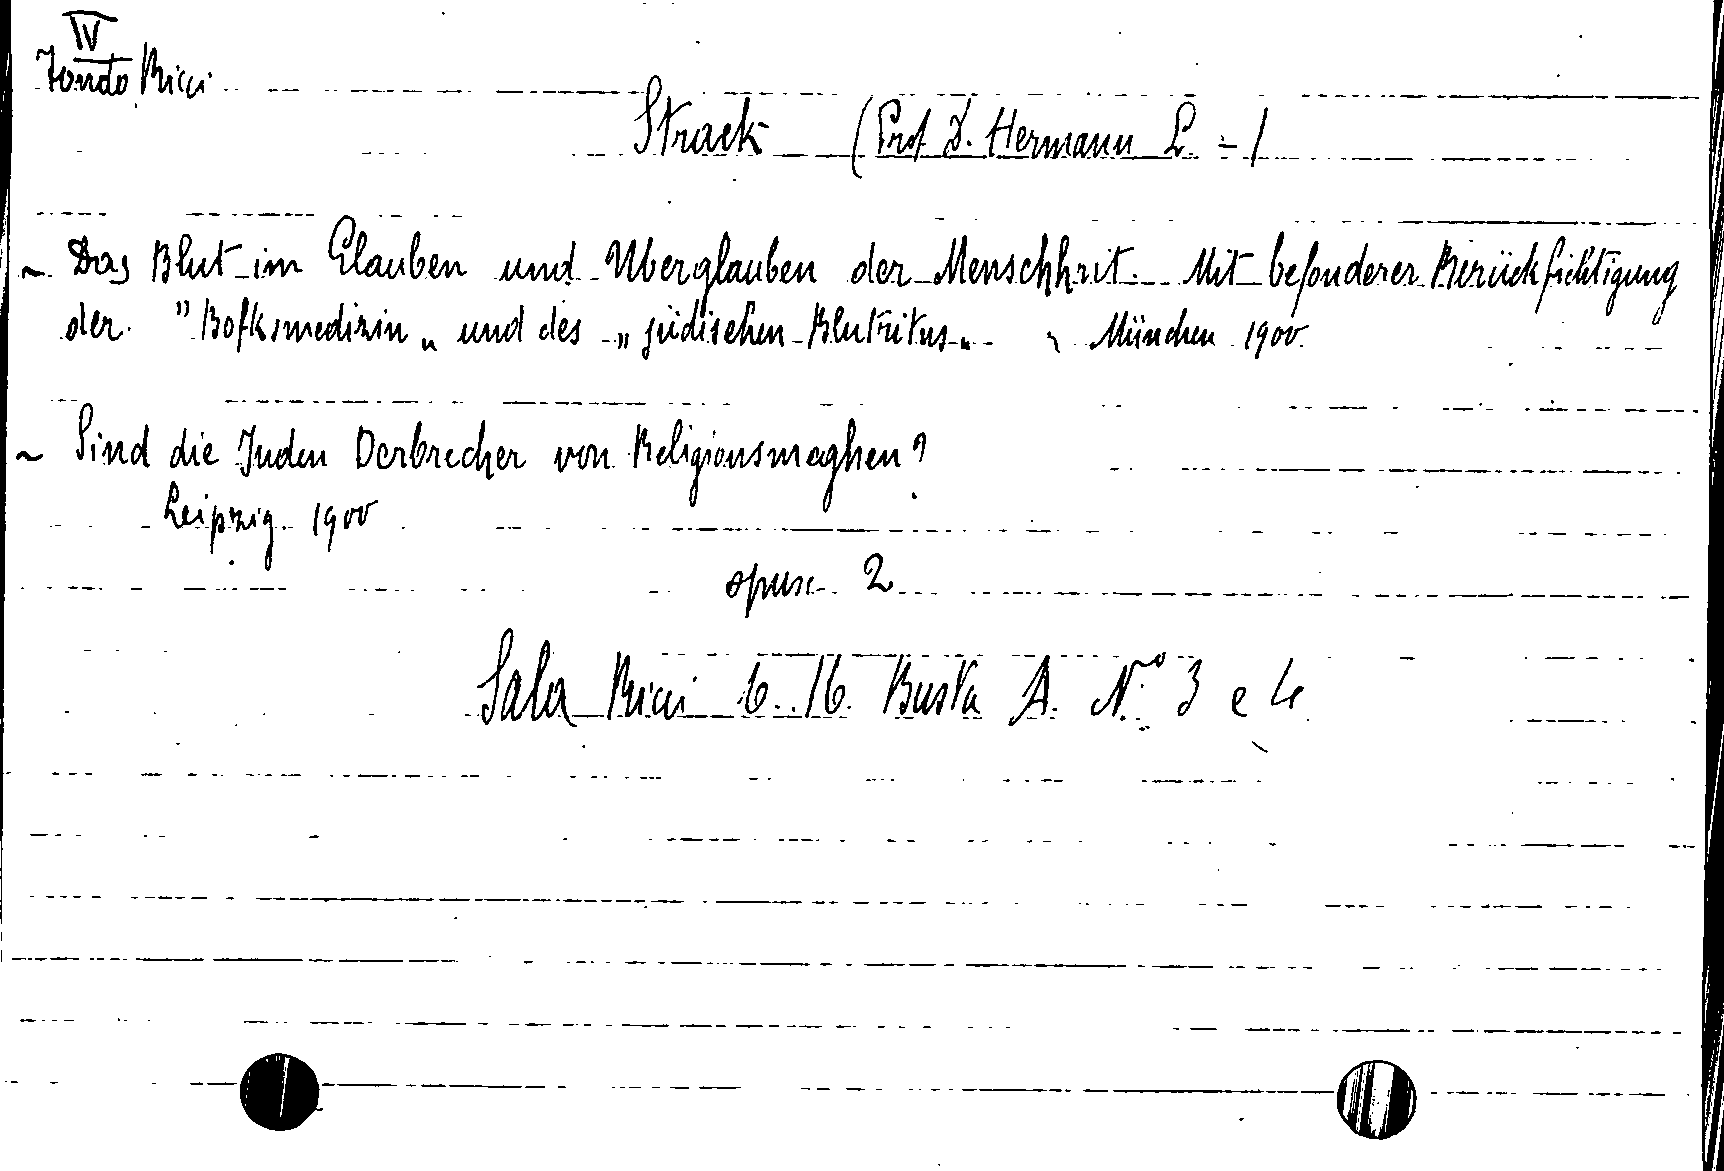 IV
Fondo Ricci
Strack (Prof. D. Hermann L. -)
~ Das Blut im Glauben und Uberglauben der Menschhrit. Mit besonderer Berücksichtigung
der "Bofksmedizin" und des "jüdischen Blutritus". München 1900
~ Sind die Juden Derbrecher von Religionsmeghen?
Leipzig 1900
opusc 2
Sala Ricci 6. 16. Busta A. N.° 3 e 4